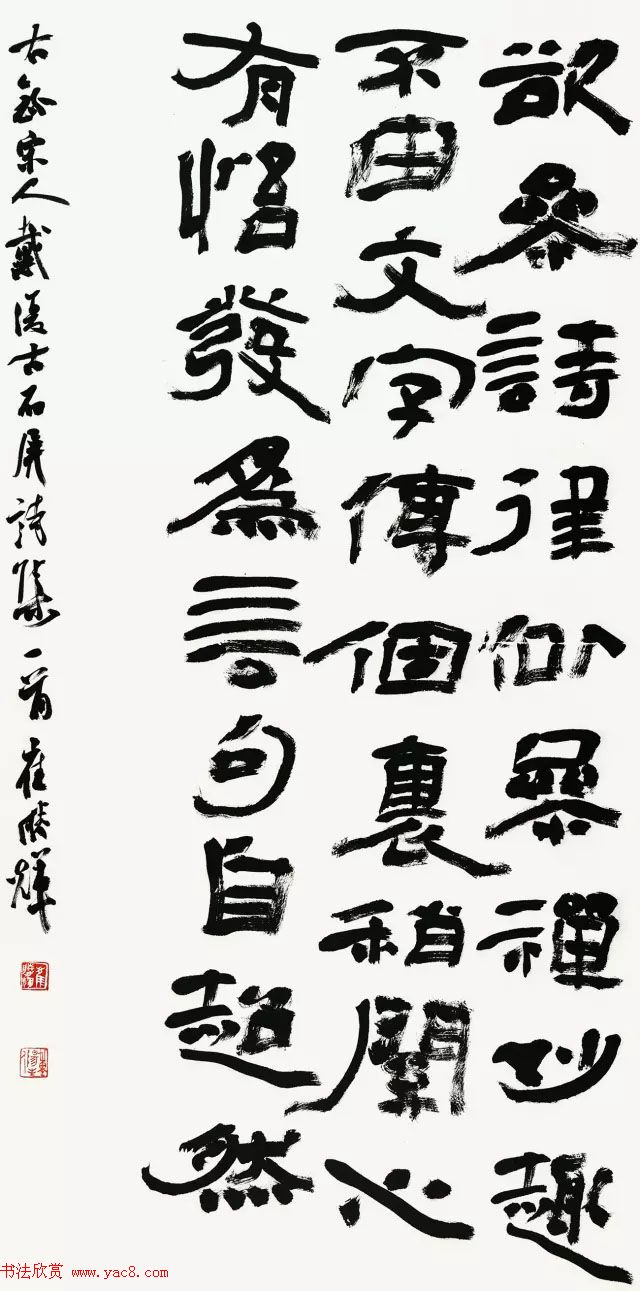 欲參詩律似參禪妙趣
不由文字傳個裏稍關心
有悟發為言句自超然
右錄宋人戴復古石屏詩集一首崔勝輝
书法欣赏 www.yac8.com